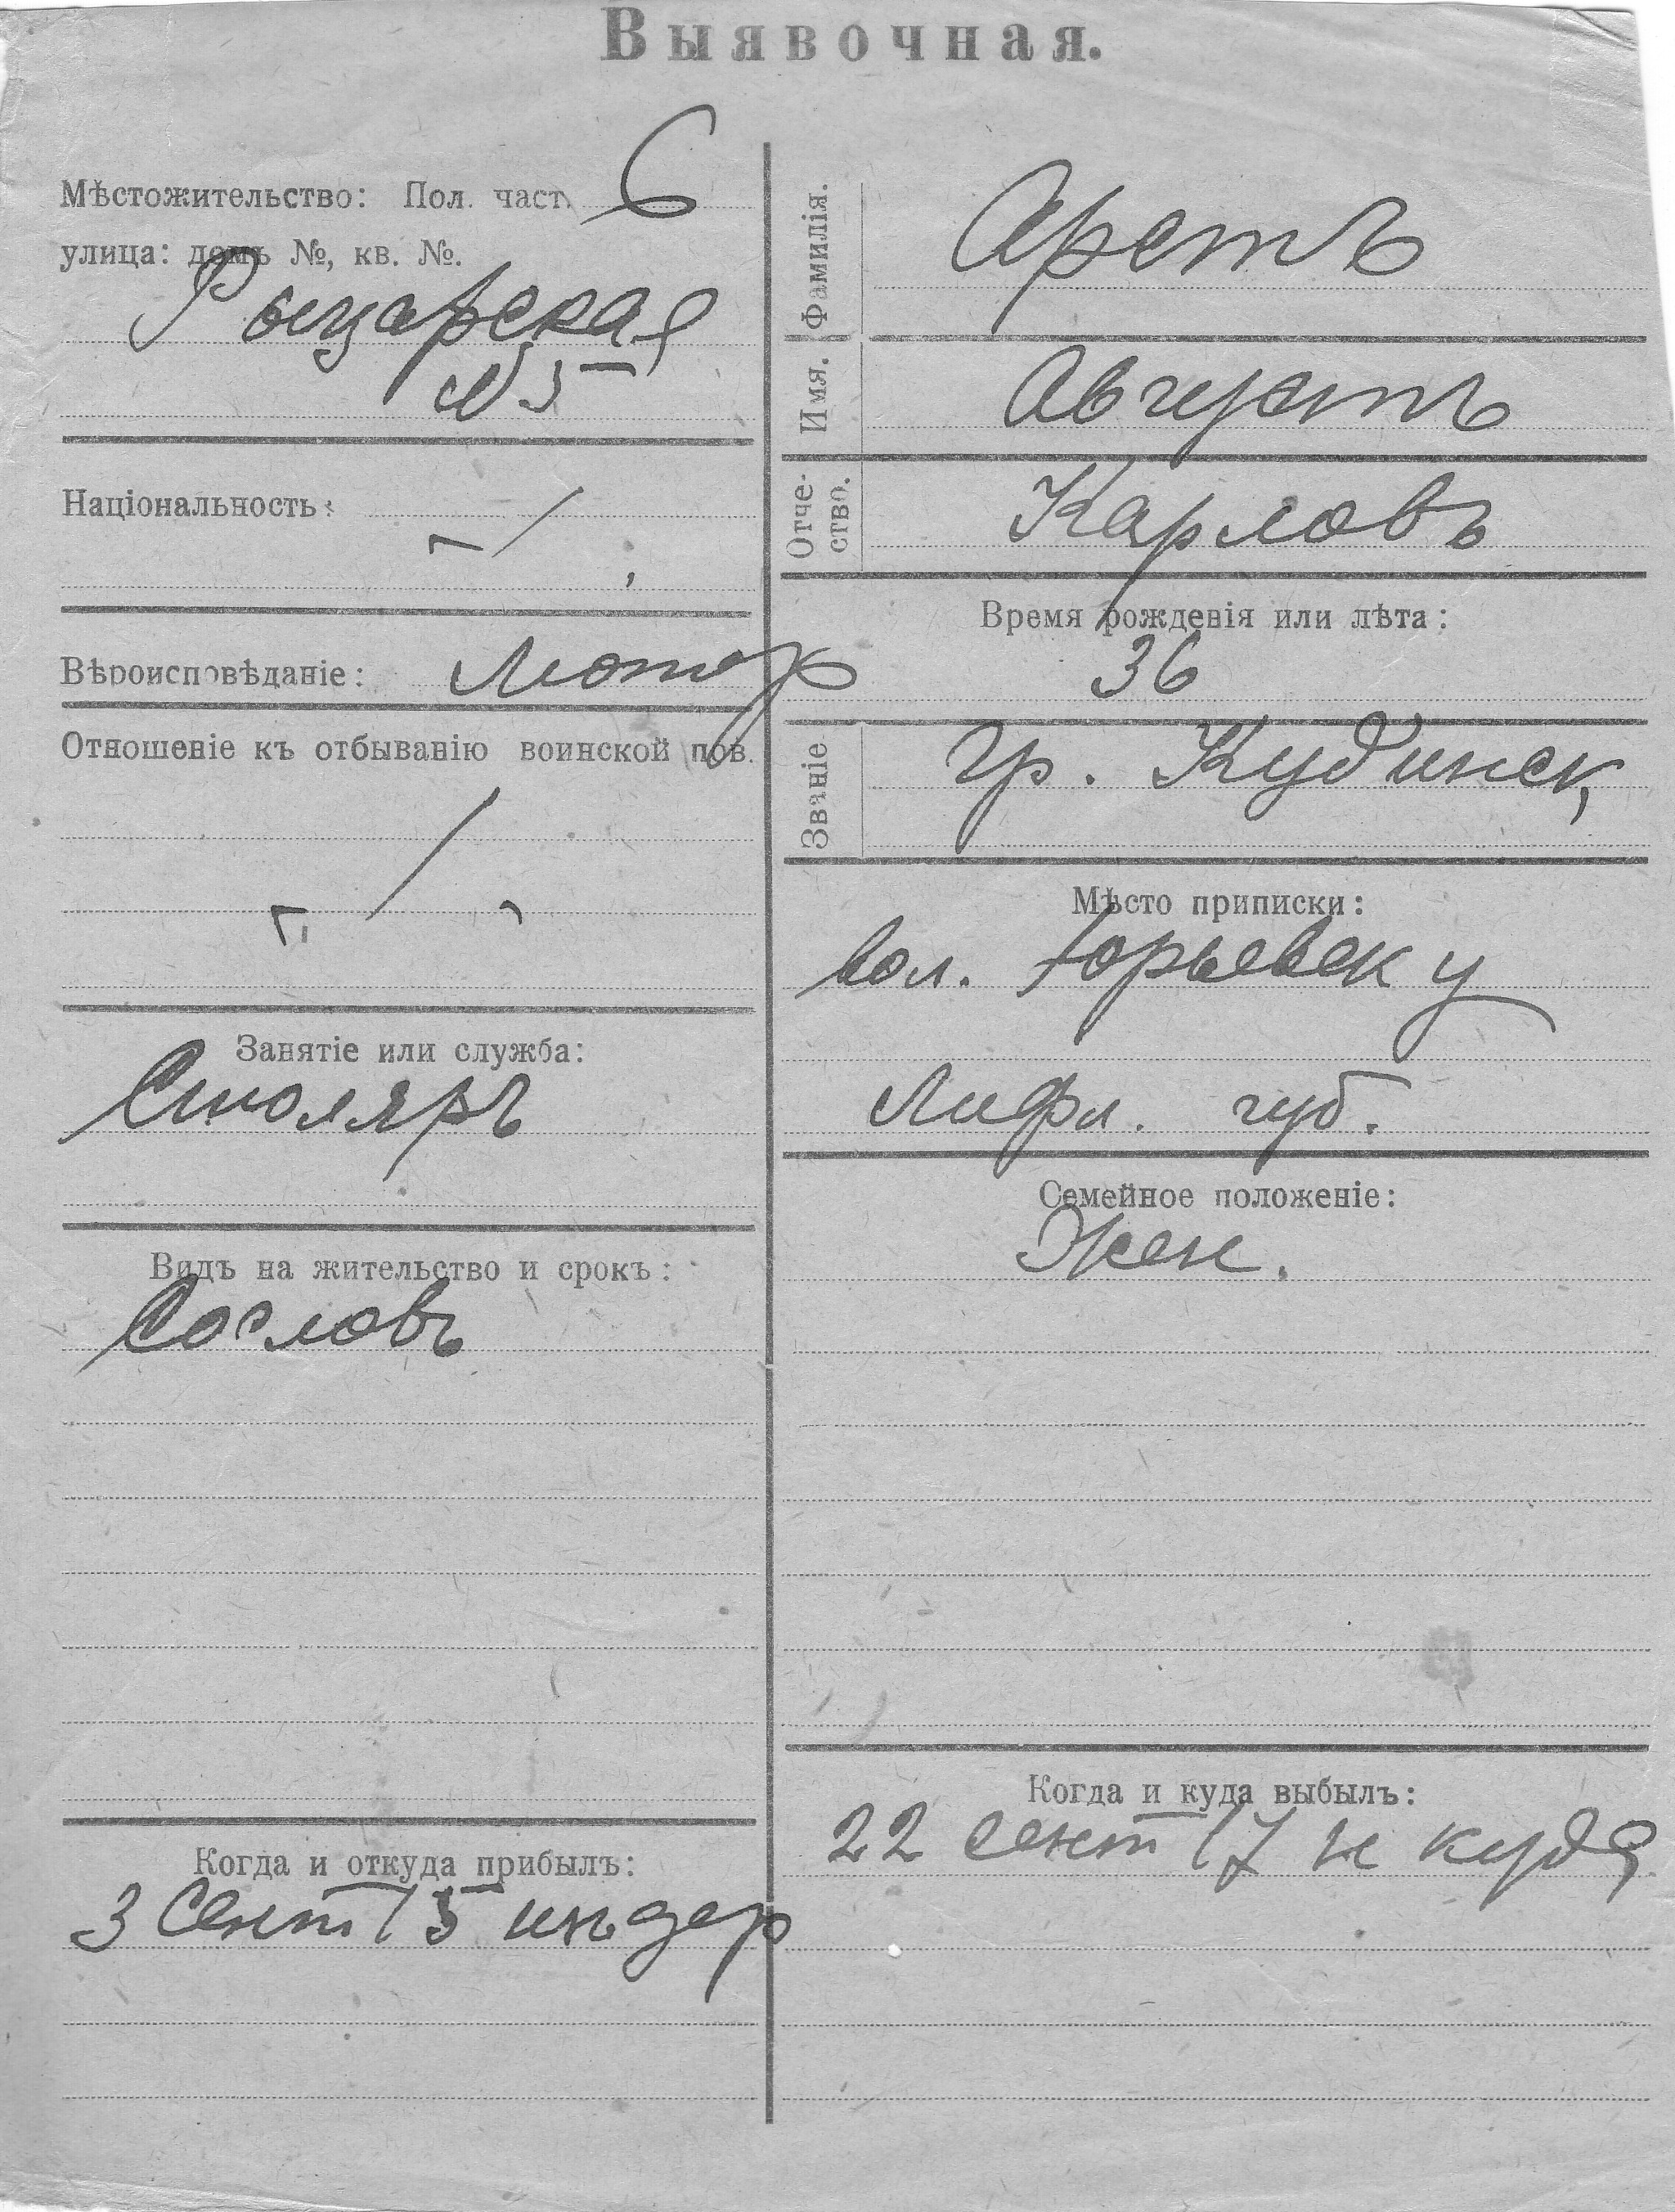 Выявочная.
Мѣстожительство: Пол. част. 6
улица: домъ №, кв. №.
Рыцарская
№5
Національность:
Вѣроисповѣданіе: Лютер
Отношеніе къ отбыванію воинской пов.
Занятіе или служба:
Столяръ
Видъ на жительство и срокъ:
Сословъ
Когда и откуда прибылъ:
3 Сент 15
Фамилія. Арстъ
Имя. Августъ
Отче-
ство.
Карловъ
Время рожденія или лѣта:
36
Званіе гр. Кудинск,
Мѣсто приписки:
вол. Юрьевск у
Лифл. губ.
Семейное положеніе:
Жен.
Когда и куда выбылъ:
22 Сент 17 н куда